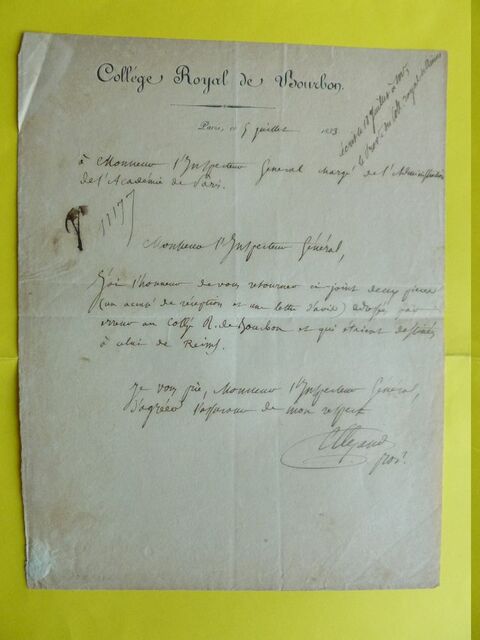 Collége Royal de Bourbon.
Paris, ce 5 juillet 1833
écrit le 12 juillet à Mr
le Prov. du Coll. royal de Reims
à Monsieur l'Inspecteur Général chargé de l'Administration
de l'Académie de Paris.
Monsieur l'Inspecteur Général,
J'ai l'honneur de vous retourner ci joint deux pièces
(un accusé de réception et une lettre d'avis) adressées par
erreur au Collége R. de Bourbon et qui étaient destinées
à celui de Reims.
Je vous prie, Monsieur l'Inspecteur Général,
d'agréer l'assurance de mon respect
prov.